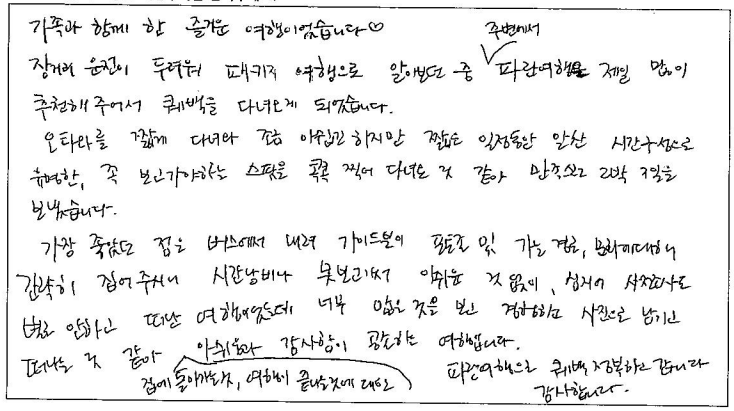 가족과 함께 한 즐거운 여행이었습니다♡
장거리 운전이 두려워 패키지 여행으로 알아보던 중 주변에서 파란여행을 제일 많이
추천해 주어서 퀘벡을 다녀오게 되었습니다.
오타와를 짧게 다녀와 조금 아쉽긴 하지만 짧은 일정동안 알찬 시간구성으로
유명한, 꼭 보고가야하는 스팟을 콕콕 찍어 다녀온 것 같아 만족스런 2박 3일을
보냈습니다.
가장 좋았던 점은 버스에서 내려 가이드분이 포토존 및 가는 경로, 문화에대해서
간략히 집어주시니 시간낭비나 못보고가서 아쉬운 것 없이, 심지어 사전조사도
별로 안하고 떠난 여행이었는데 너무 많은 것을 보고 경험하고 사진으로 남기고
떠나는 것 같아 아쉬움과 감사함이 공존하는 여행입니다.
집에 돌아가는것, 여행이 끝나는것에 대한
파란여행으로 퀘벡 정복하고 갑니다
감사합니다.